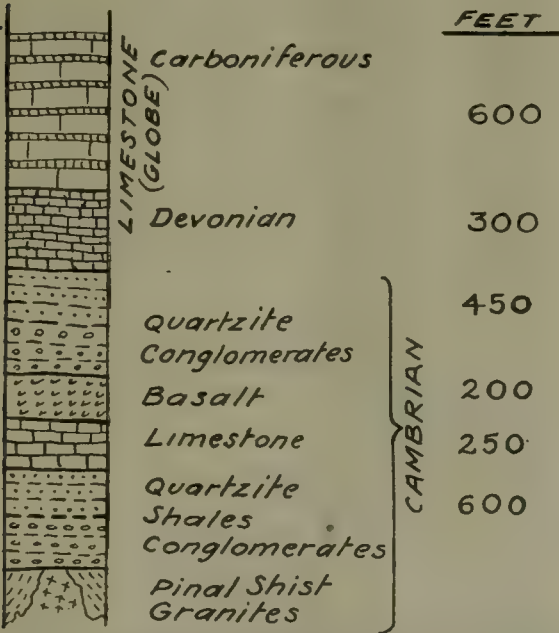 FEET
LIMESTONE
(GLOBE)
Carboniferous
600
Devonian
300
CAMBRIAN
450
Quartzite
Conglomerates
Basalt
200
Limestone
250
Quartzite
Shales
Conglomerates
600
Pinal Shist
Granites